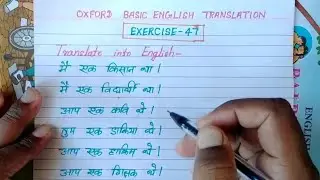 OXFORD BASIC ENGLISH TRANSLATION
EXERCISE-47
Translate into English-
मैं एक किसान था।
मैं एक विद्यार्थी था।
आप एक कवि थे।
तुम एक डाकिया थे।
आप एक हाकिम थे।
आप एक शिक्षक थे।